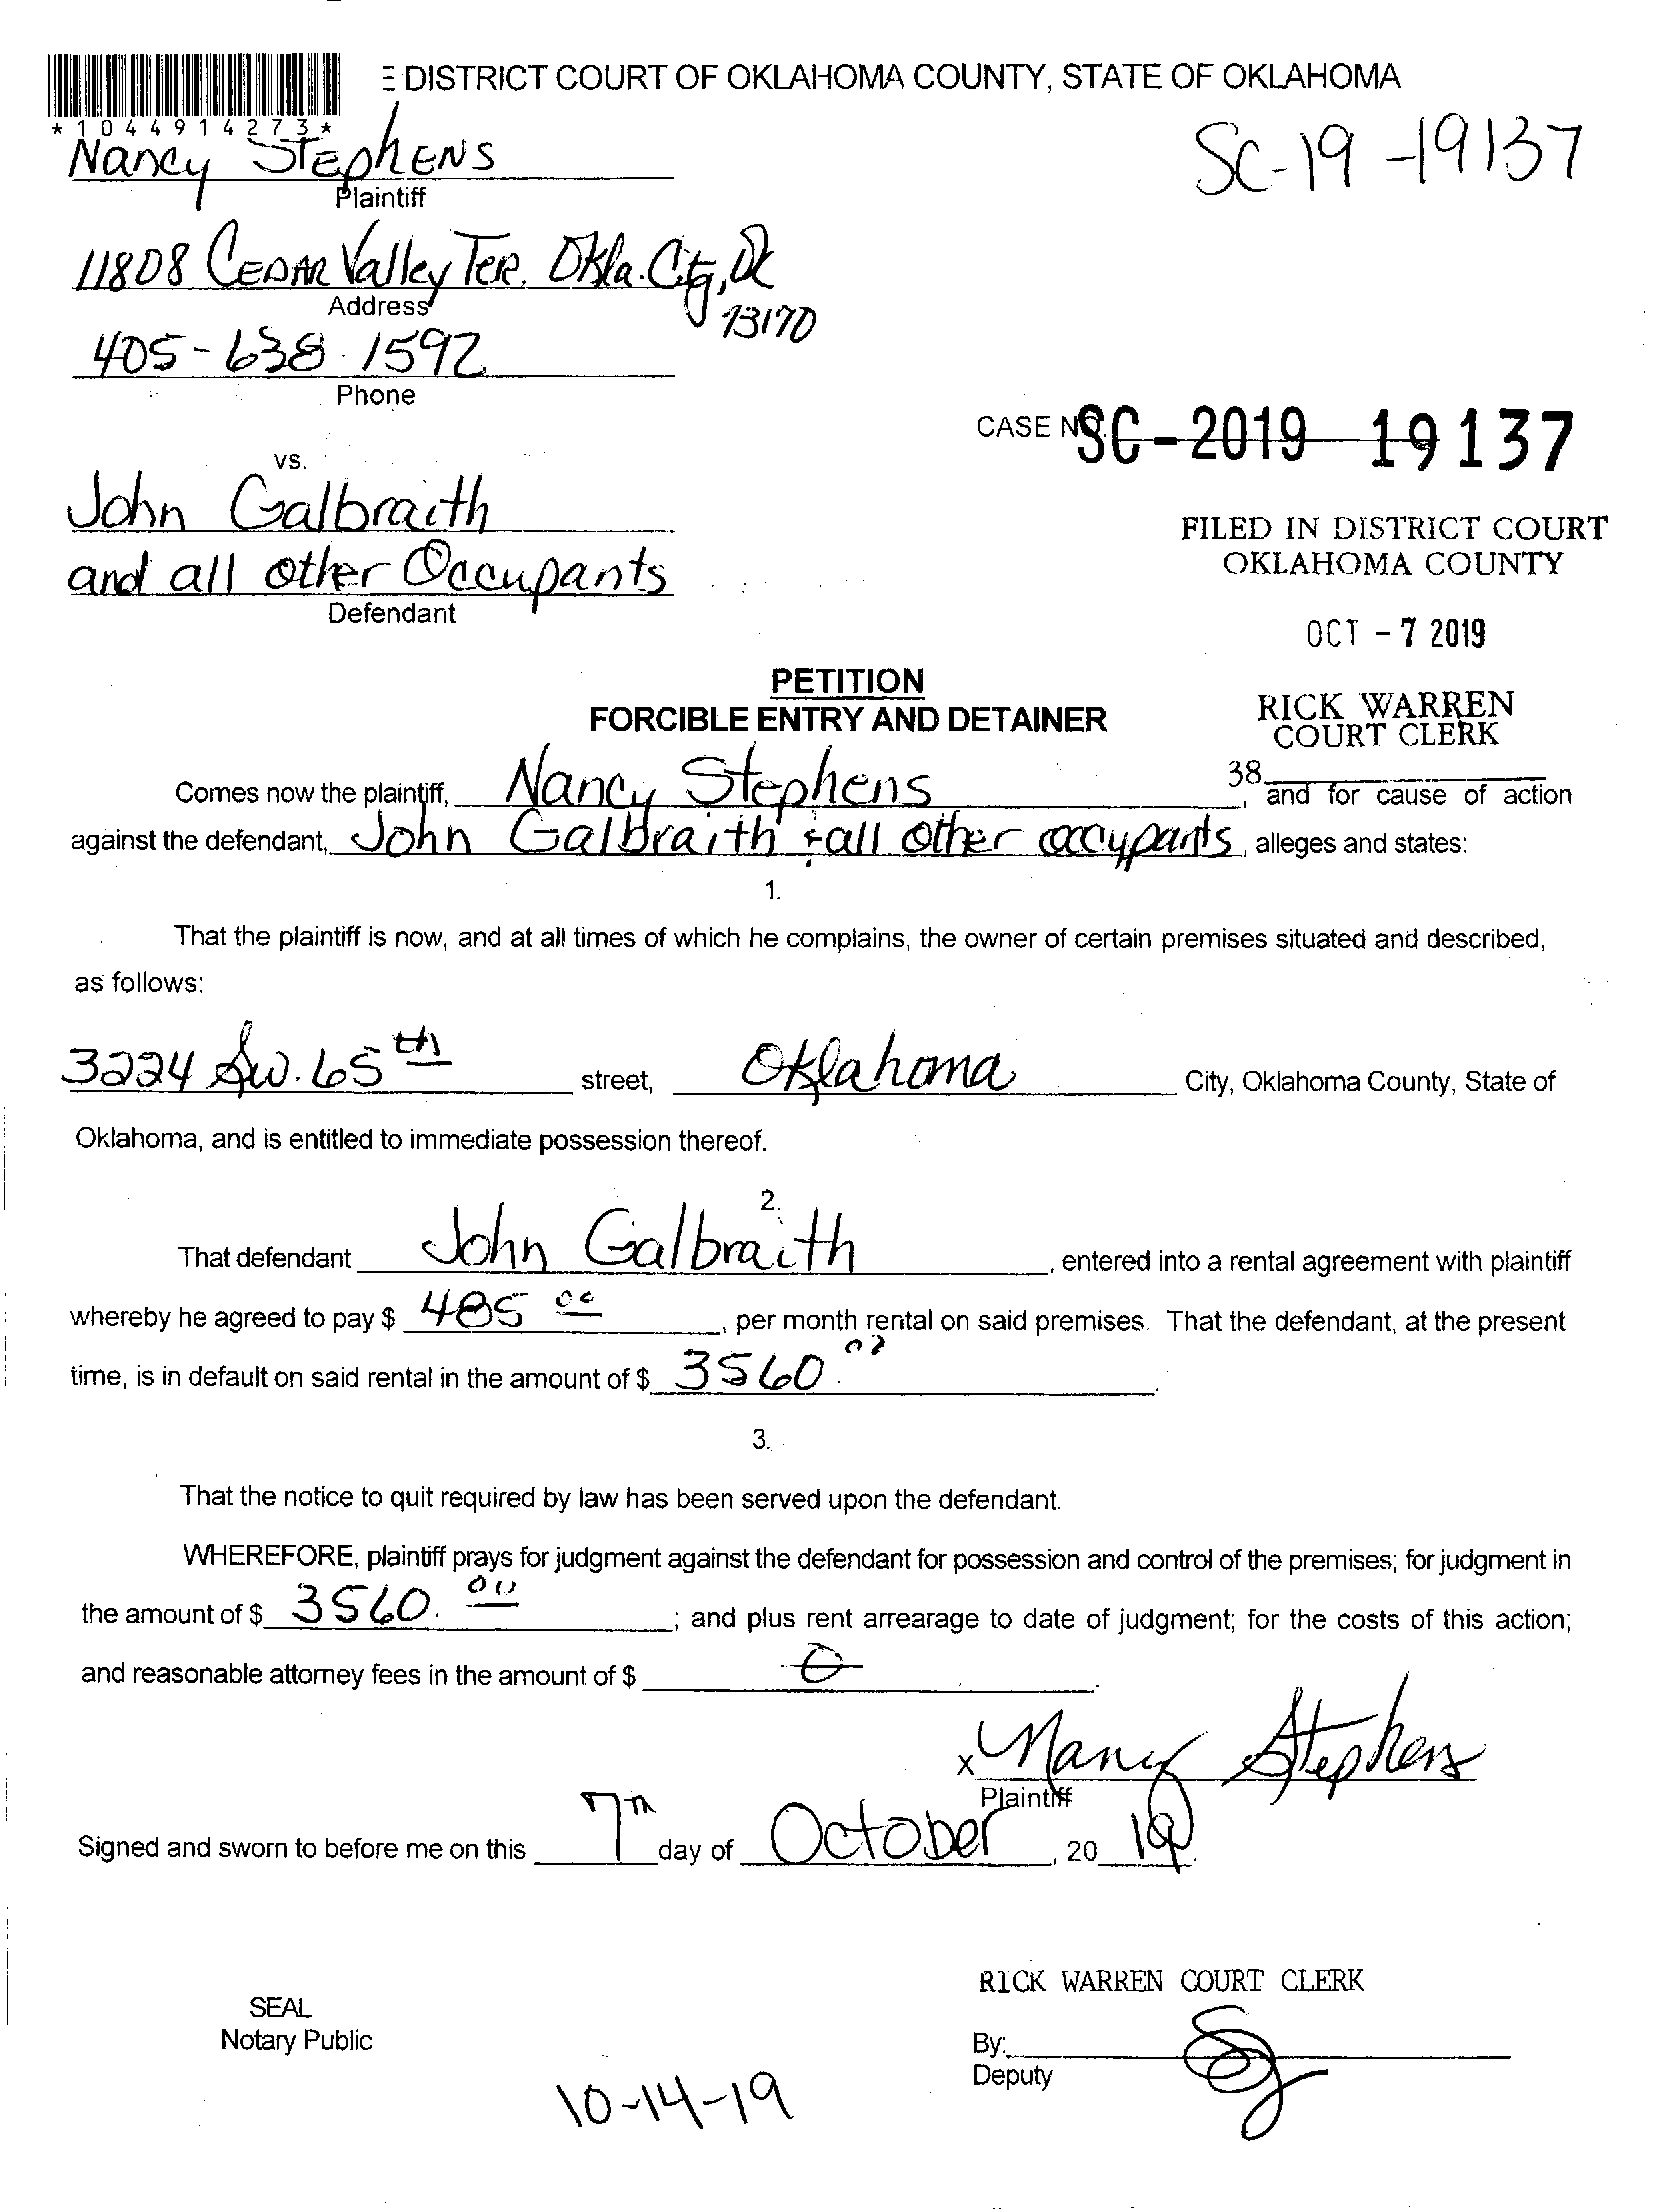 E DISTRICT COURT OF OKLAHOMA COUNTY, STATE OF OKLAHOMA
*1044914273*
Nancy Stephens
SC-19-19137
Plaintiff
11808 Cedar Valley Ter. Okla. City, Ok
73170
Address
405-638-1592
Phone
CASE NO. SC-2019-19137
vs.
John Galbraith
and all other Occupants
Defendant
FILED IN DISTRICT COURT
OKLAHOMA COUNTY
OCT - 7 2019
RICK WARREN
COURT CLERK
38
PETITION
FORCIBLE ENTRY AND DETAINER
Comes now the plaintiff, Nancy Stephens, and for cause of action
against the defendant, John Galbraith & all other occupants, alleges and states:
1.
That the plaintiff is now, and at all times of which he complains, the owner of certain premises situated and described,
as follows:
3224 Sw. 65th street, Oklahoma City, Oklahoma County, State of
Oklahoma, and is entitled to immediate possession thereof.
2.
That defendant John Galbraith, entered into a rental agreement with plaintiff
whereby he agreed to pay $ 485 00, per month rental on said premises. That the defendant, at the present
time, is in default on said rental in the amount of $ 3560.
3.
That the notice to quit required by law has been served upon the defendant.
WHEREFORE, plaintiff prays for judgment against the defendant for possession and control of the premises; for judgment in
the amount of $ 3560. 00; and plus rent arrearage to date of judgment; for the costs of this action;
and reasonable attorney fees in the amount of $ 0.
x Nancy Stephens
Plaintiff
Signed and sworn to before me on this 7th day of October, 2019.
RICK WARREN COURT CLERK
SEAL
Notary Public
By:
Deputy
10-14-19